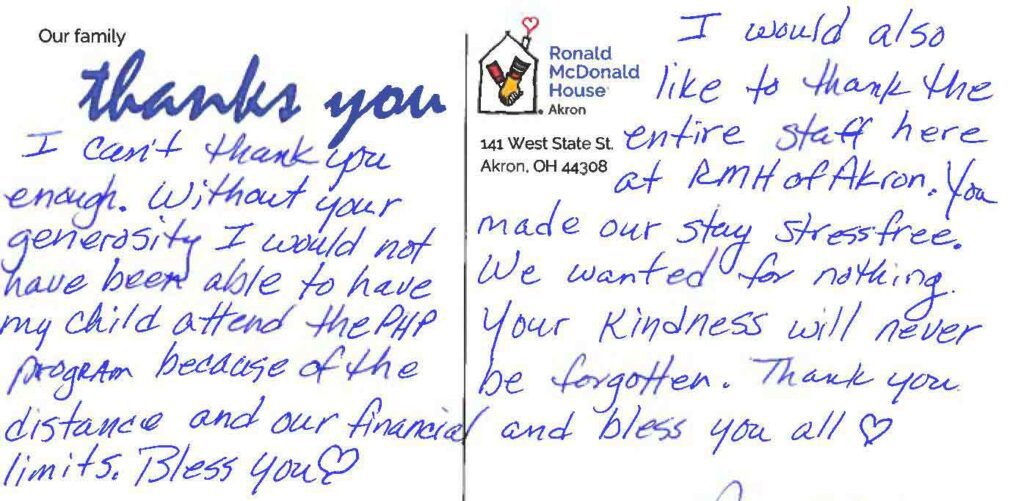 Our family
thanks you
I can't thank you
enough. Without your
generosity I would not
have been able to have
my child attend the PHP
program because of the
distance and our financial
limits. Bless you♡
Ronald
McDonald
House
Akron
141 West State St.
Akron, OH 44308
I would also
like to thank the
entire staff here
at RMH of Akron. You
made our stay stress free.
We wanted for nothing.
Your kindness will never
be forgotten. Thank you
and bless you all ♡